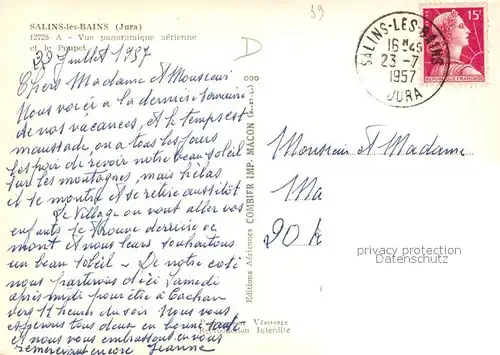 SALINS-les-BAINS (Jura)
12725 A - Vue panoramique aérienne
et le Poupet
Juillet 1957
Chers Madame et Monsieur
Nous voici à la dernière semaine
de nos vacances, et le temps est
maussade, on a tous les jours
l'espoir de revoir notre beau soleil
sur les montagnes, mais hélas
il se montre et se retire aussitôt
Le Village ou vont aller vos
enfants se trouve derrière ce
mont et nous leurs souhaitons
un beau soleil - De notre coté
nous partirons d'ici samedi
après midi pour être à Cachan
vers 11 heures du soir Nous vous
espérons tous deux en bonne santé
et nous vous embrassons en vous
remerciant encore Jeanne
D
39
Editions Aériennes COMBIER IMP. MACON
Véritable
Reproduction Interdite
SALINS-LES-BAINS
16H45
23-7
1957
JURA
15F
REPUBLIQUE FRANÇAISE
Monsieur et Madame
privacy protection